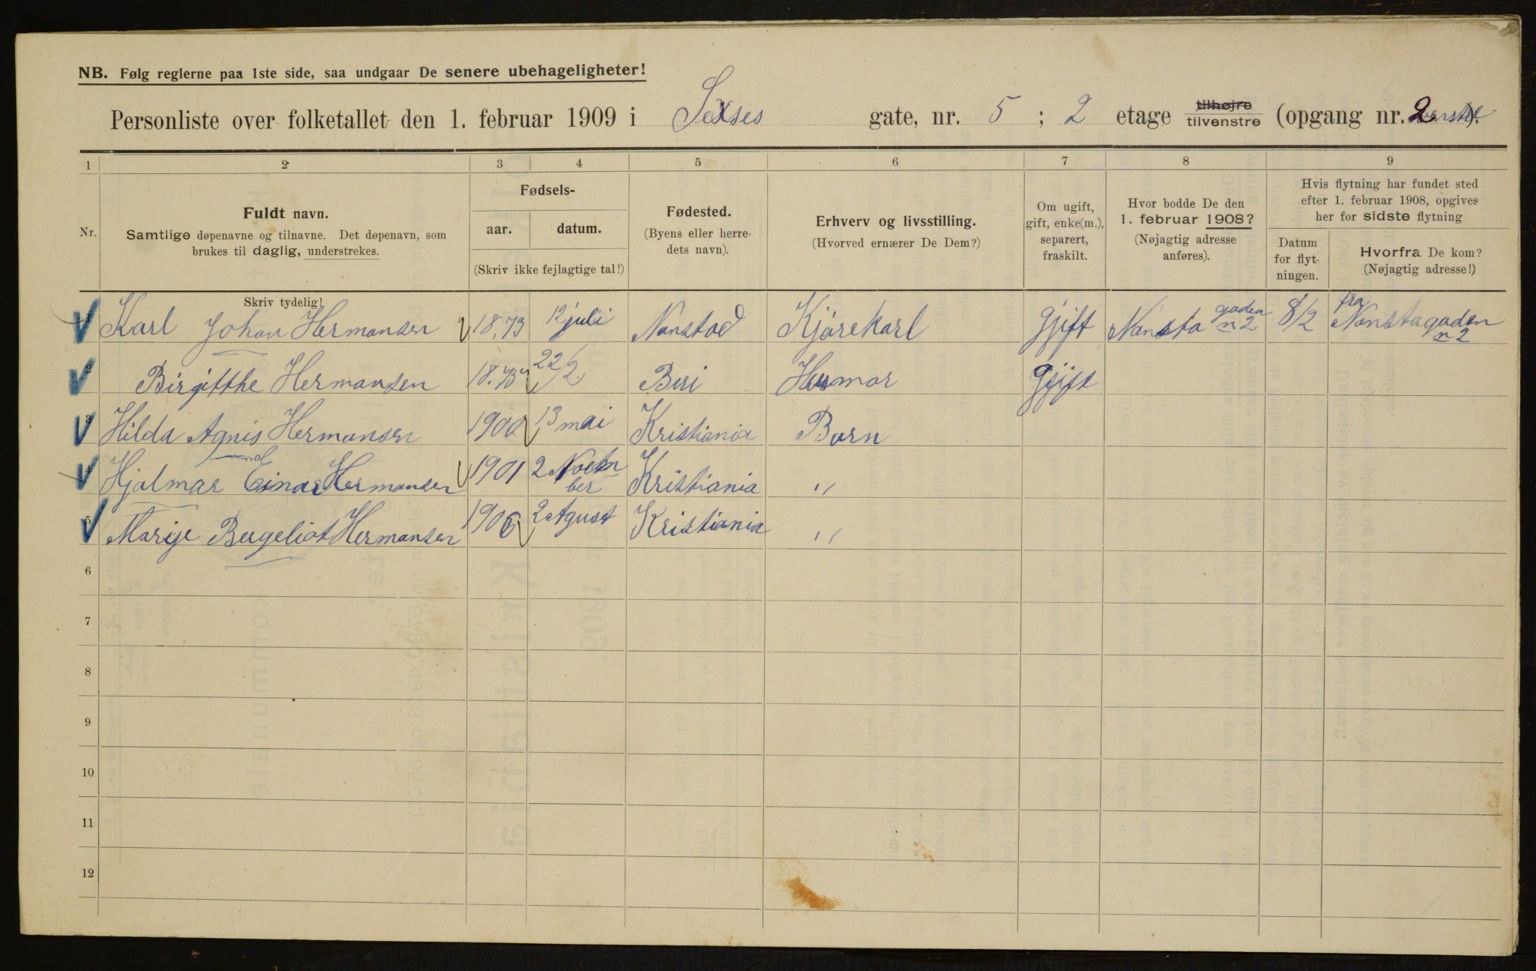 NB. Følg reglerne paa 1ste side, saa undgaar De senere ubehageligheter!
Personliste over folketallet den 1. februar 1909 i Sexses gate, nr. 5 ; 2 etage tilhøjre tilvenstre (opgang nr. 2
1 2 3 4 5 6 7 8 9
Nr.
Fuldt navn.
Samtlige døpenavne og tilnavne. Det døpenavn, som
brukes til daglig, understrekes.
Skriv tydelig!
Fødsels-
aar. datum.
(Skriv ikke fejlagtige tal!)
Fødested.
(Byens eller herre-
dets navn).
Erhverv og livsstilling.
(Hvorved ernærer De Dem?)
Om ugift,
gift, enke(m.),
separert,
fraskilt.
Hvor bodde De den
1. februar 1908?
(Nøjagtig adresse
anføres).
Hvis flytning har fundet sted
efter 1. februar 1908, opgives
her for sidste flytning
Datum
for flyt-
ningen.
Hvorfra De kom?
(Nøjagtig adresse!)
Karl Johan Hermansen 18.73 12 juli Nanstad Kjørekarl gjift Nansta gaden n 2 8/2 fra Nonstagaden n 2
Birgitthe Hermansen 18.73 22/2 Biri Husmor gjift
Hilda Agnis Hermansen 1900 13 mai Kristiania Barn
Hjalmar Einar Hermansen 1901 2 Kristiania "
Marije Bergeliot Hermansen 1906 2 Agust Kristiania "
6
7
8
9
10
11
12